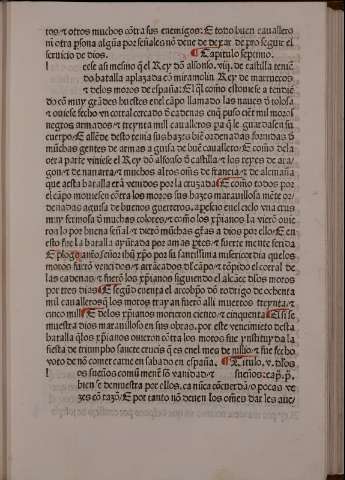 ros ⁊ otros muchos cõtra sus enemigos: E todo buen cauallero
ni otra psona algũa por señales nõ deue de dexar de pro seguir el
seruicio de dios. ¶ Capitulo septimo.
l eese asi mesmo q̃l Rey dõ alfonso. viij. de castilla teniẽ
do batalla aplazada cõ miramolin. Rey de marruecos
⁊ delos moros de españa: El q̃l como estouiese a tendiẽ
do cõ muy grãdes huestes enel cãpo llamado las naues d' tolosa
⁊ ouiese fecho vn corral cercado d' cadenas enq̃ puso ciẽt mil moros
negros armados ⁊ treynta mil caualleros pa q̃ le guardasen su
cuerpo: E allẽde desto tenia sus hazes biẽ ordenadas fornidas d'
mũchas gentes de armas a guisa de buẽ cauallero: E como dela
otra parte viniese el Rey dõ alfonso d' castilla ⁊ los reyes de ara
gon ⁊ de nauarra ⁊ muchos altos oms̃ de francia ⁊ de alemaña
que aesta batalla erã venidos por la cruzada: E como todos por
el cãpo mouiesen cõtra los moros sus hazes marauillosa mẽte or
denadas aguisa de buenos guerreros. apescio enel cielo vna cruz
muy fermosa d' muchas colores: ⁊ como los xp̃ianos la vierõ ouie
ron lo por buena señal ⁊ dierõ mũchas grãs a dios por ello: E en
esto fue la batalla ayũtada por amas ptes: ⁊ fuerte mente ferida
E plogo a nr̃o señor ihũ xp̃o por su santissima misericordia quelos
moros fuerõ vencidos ⁊ arrãcados dl' cãpo ⁊ rõpido el corral de
las cadenas ⁊ fuerõ los xp̃ianos siguiendo el alcãce dlos moros
por tres dias: E segũd cuenta el arçobp̃o dõ rodrigo de ochenta
mil caualleros q̃ los moros trayan fuerõ alli muertos treynta ⁊
cinco mill: E delos xp̃ianos moriron ciento ⁊ cinquenta: E si se
muestra dios marauilloso en sus obras. por este vencimiento desta
batalla q̃los xp̃ianos ouieron cõtra los moros fue ynstituyda la
fiesta de triumpho sancte crucis q̃ es enel mes de iullio: ⁊ fue fecho
voto de nõ comer carne en sabado en españa. ¶ Titulo. v. dlos
l os sueños comũ mente sõ vanidad: ⁊ sueños: cap̃. p̃.
bien se demuestra por ellos. ca nũca cõcuerdã: o pocas ve
zes cõ razõ: E por tanto nõ deuen los oms̃ dar les aue/